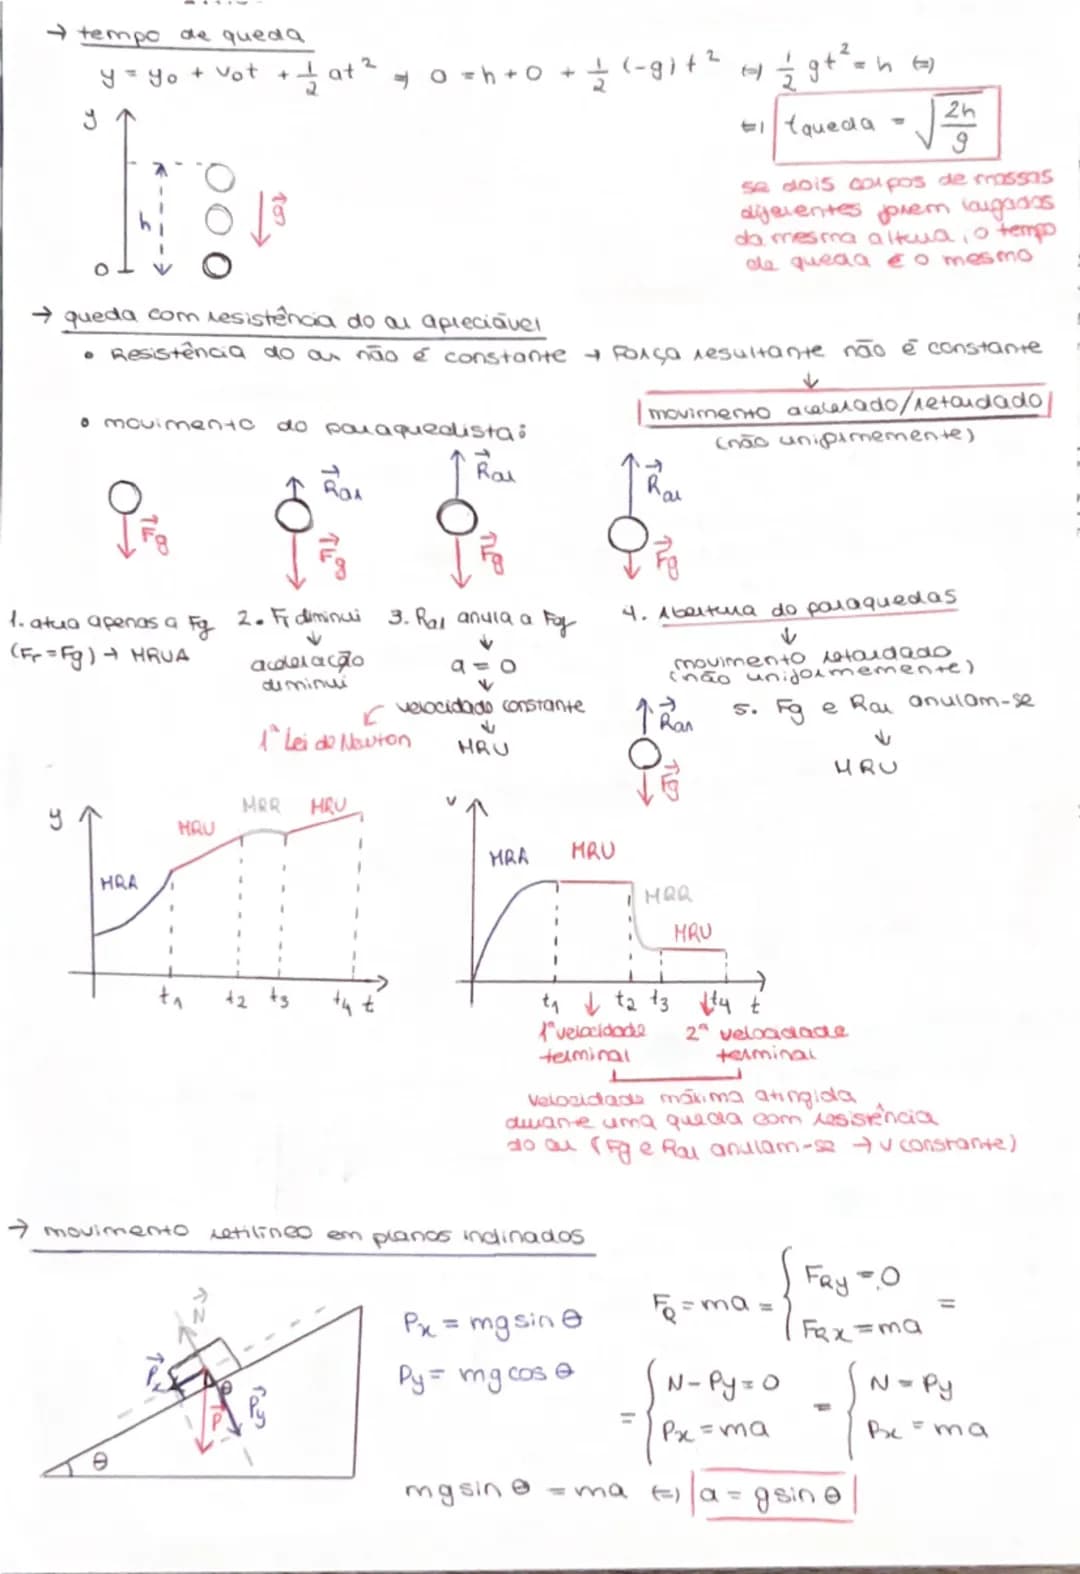 → tempo de queda
y = y₀ + v₀t + 1/2 at² ⇒ 0 = h + 0 + 1/2 (-g) t² ⇔ 1/2 gt² = h ⇔
⇔ tqueda = √(2h/g)
se dois corpos de massas
diferentes forem largados
da mesma altura, o tempo
de queda é o mesmo
y
h
g
0
→ queda com resistência do ar apreciável
• Resistência do ar não é constante → Força resultante não é constante
↓
movimento acelerado/retardado
(não uniformemente)
• movimento do paraquedista:
Rar Rar Rar
Fg Fg Fg Fg
1. atua apenas a Fg
(Fr = Fg) → MRUA
2. Fr diminui
↓
aceleração
diminui
3. Rar anula a Fg
↓
a = 0
↓
velocidade constante
↓
MRU
1ª Lei de Newton
4. Abertura do paraquedas
↓
movimento retardado
(não uniformemente)
Rar
Fg
5. Fg e Rar anulam-se
↓
MRU
y
MRA
MRU
MRR
MRU
t₁ t₂ t₃ t₄ t
v
MRA
MRU
MRR
MRU
t₁ ↓ t₂ t₃ ↓ t₄ t
1ª velocidade
terminal
2ª velocidade
terminal
velocidade máxima atingida
durante uma queda com resistência
do ar (Fg e Rar anulam-se → v constante)
→ movimento retilíneo em planos inclinados
N
Px
θ
P
Py
θ
Px = mg sin θ
Py = mg cos θ
FR = ma = { FRy = 0
FRx = ma =
= { N - Py = 0
Px = ma
= { N = Py
Px = ma
mg sin θ = ma ⇔ a = g sin θ